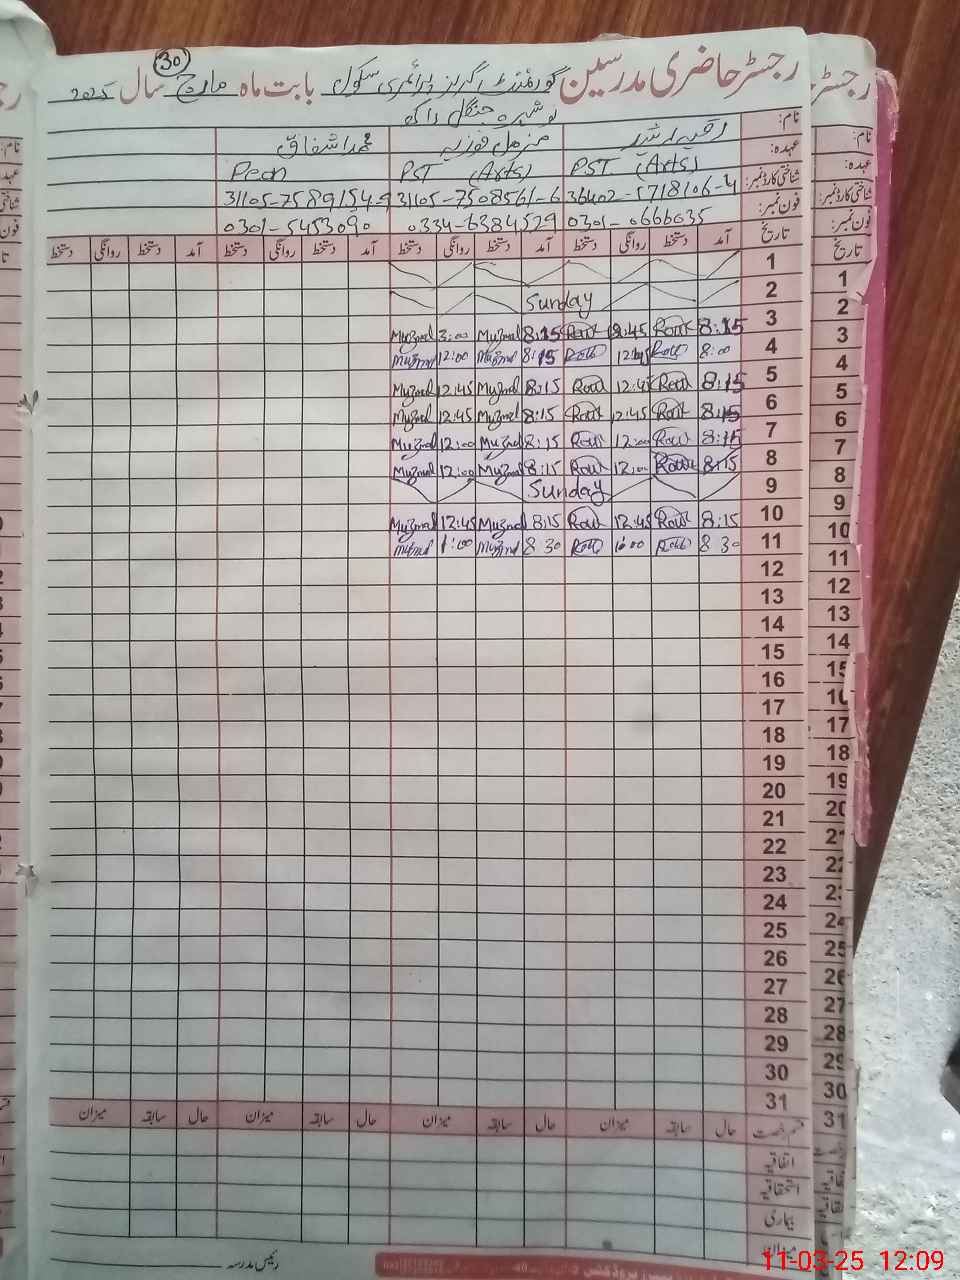 30
رجسٹر حاضری مدرسین گورنمنٹ گرلز پرائمری سکول بابت ماہ مارچ سال 2025
نام:
رقیہ ارشید منزمل فوزیہ محمد اشفاق
عہدہ: PST (Arts) PST (Arts) Peon
شناختی کارڈ نمبر: 36402-5718106-4 31105-7508561-6 31105-7589154-9
فون نمبر: 0301-0666035 0334-6384529 0301-5453090
تاریخ آمد دستخط روانگی دستخط آمد دستخط روانگی دستخط آمد دستخط روانگی دستخط آمد دستخط روانگی دستخط
1
2 Sunday
3 8:15 Rout 12:45 Rout 8:15 Muzmal 3:00 Muzmal
4 8:00 12:45 8:15 Muzmal 12:00 Muzmal
5 8:15 Rout 12:45 Rout 8:15 Muzmal 12:45 Muzmal
6 8:15 Rout 12:45 Rout 8:15 Muzmal 12:45 Muzmal
7 8:15 Rout 12:00 Rout 8:15 Muzmal 12:00 Muzmal
8 8:15 Rout 12:00 Rout 8:15 Muzmal 12:00 Muzmal
9 Sunday
10 8:15 Rout 12:45 Rout 8:15 Muzmal 12:45 Muzmal
11 8 30 8 30 Muzmal 1:00 Muzmal
12
13
14
15
16
17
18
19
20
21
22
23
24
25
26
27
28
29
30
31
قسم رخصت حال سابقہ میزان حال سابقہ میزان حال سابقہ میزان حال سابقہ میزان
اتفاقیہ
استحقاقیہ
بیماری
میزان
رئیس مدرسہ
11-03-25 12:09